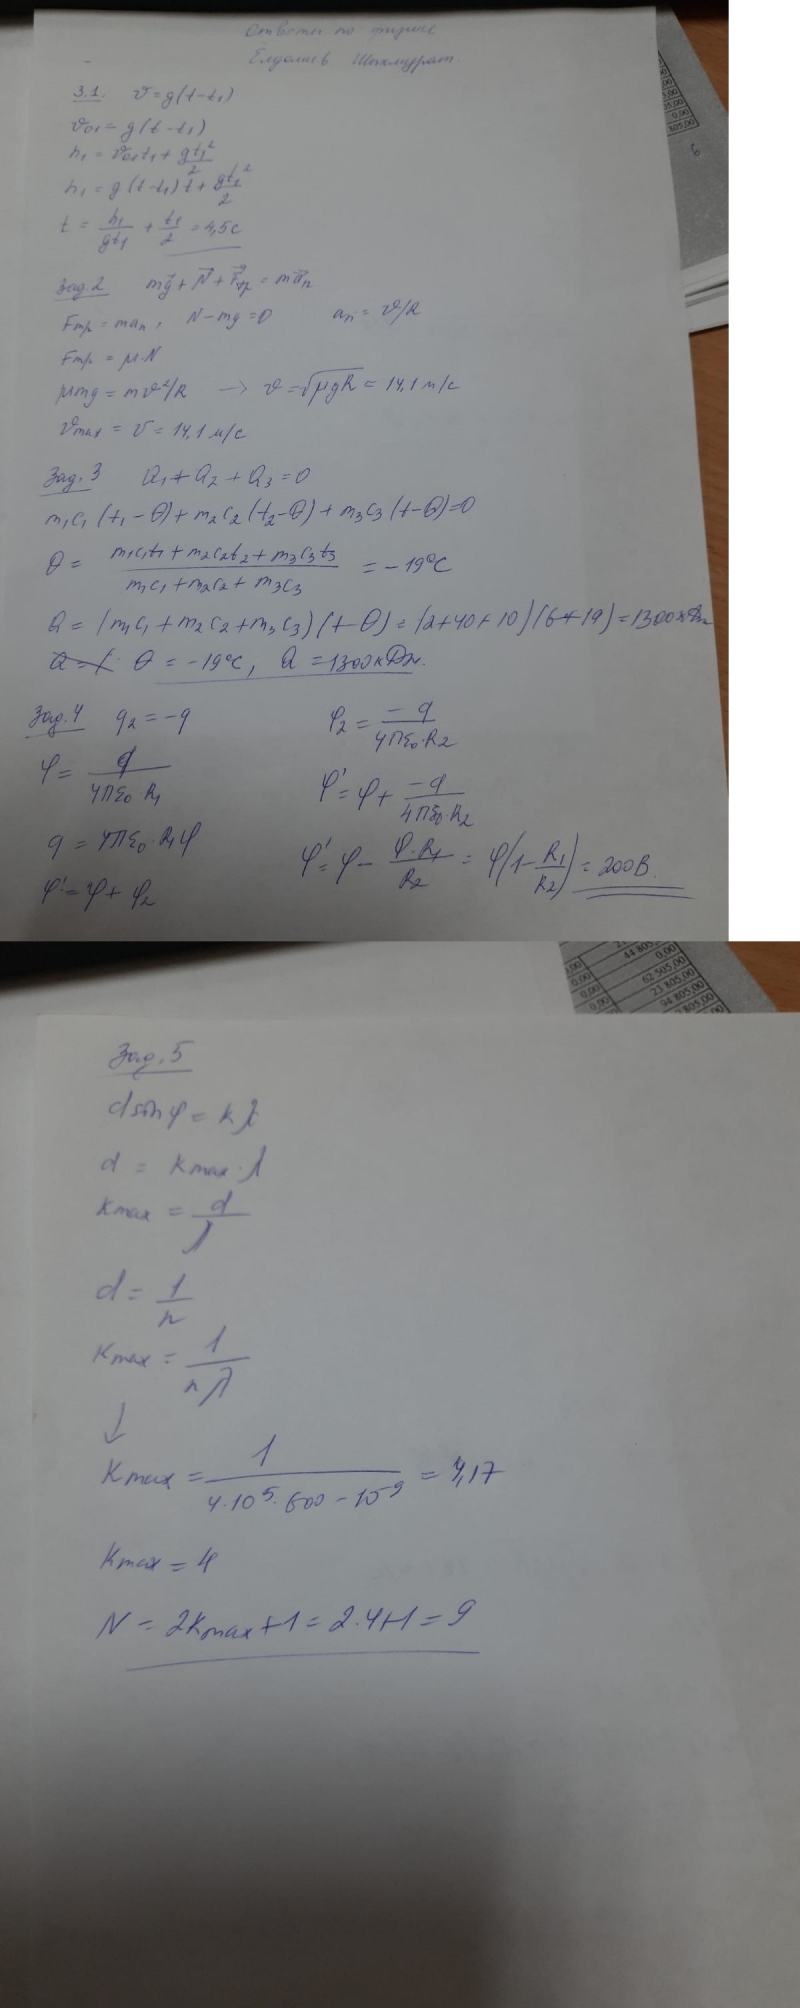 Ответы по физике
Елдолиев Шохмурат.
3.1. v = g(t-t₁)
v₀₁ = g(t-t₁)
h₁ = v₀₁t₁ + gt₁²/2
h₁ = g(t-t₁)t + gt₁²/2
t = h₁/gt₁ + t₁/2 = 4,5с
Зад.2 mg⃗ + N⃗ + F⃗тр = ma⃗n
Fтр = man, N-mg=0 an = v/R
Fтр = μ·N
μmg = mv²/R → v = √μgR = 14,1 м/с
vmax = v = 14,1 м/с
Зад.3 Q₁ + Q₂ + Q₃ = 0
m₁c₁(t₁-θ) + m₂c₂(t₂-θ) + m₃c₃(t-θ)=0
θ = m₁c₁t₁ + m₂c₂t₂ + m₃c₃t₃ / m₁c₁ + m₂c₂ + m₃c₃ = -19°C
Q = (m₁c₁ + m₂c₂ + m₃c₃)(t-θ) = (2+40+10)(6+19) = 1300кДж
θ = -19°C, Q = 1300кДж.
Зад.4 q₂ = -q φ₂ = -q/4πε₀·R₂
φ = q/4πε₀·R₁ φ' = φ + -q/4πε₀·R₂
q = 4πε₀·R₁φ
φ' = φ + φ₂ φ' = φ - φ·R₁/R₂ = φ(1 - R₁/R₂) = 200В.
6
44 805,00
0,00
62 505,00
23 805,00
94 805,00
0,00
0,00
Зад.5
dsinφ = kλ
d = kmax·λ
kmax = d/λ
d = 1/n
kmax = 1/nλ
↓
kmax = 1/4·10⁵·600-10⁻⁹ = 4,17
kmax = 4
N = 2kmax+1 = 2·4+1 = 9